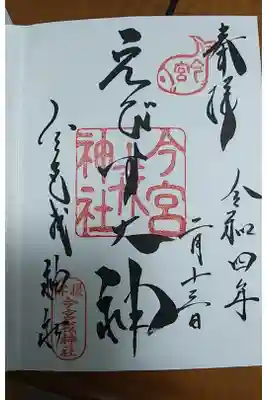 今宮
奉拝
令和四年
二月十三日
えびす大神
今宮
戎
神社
今宮戎神社